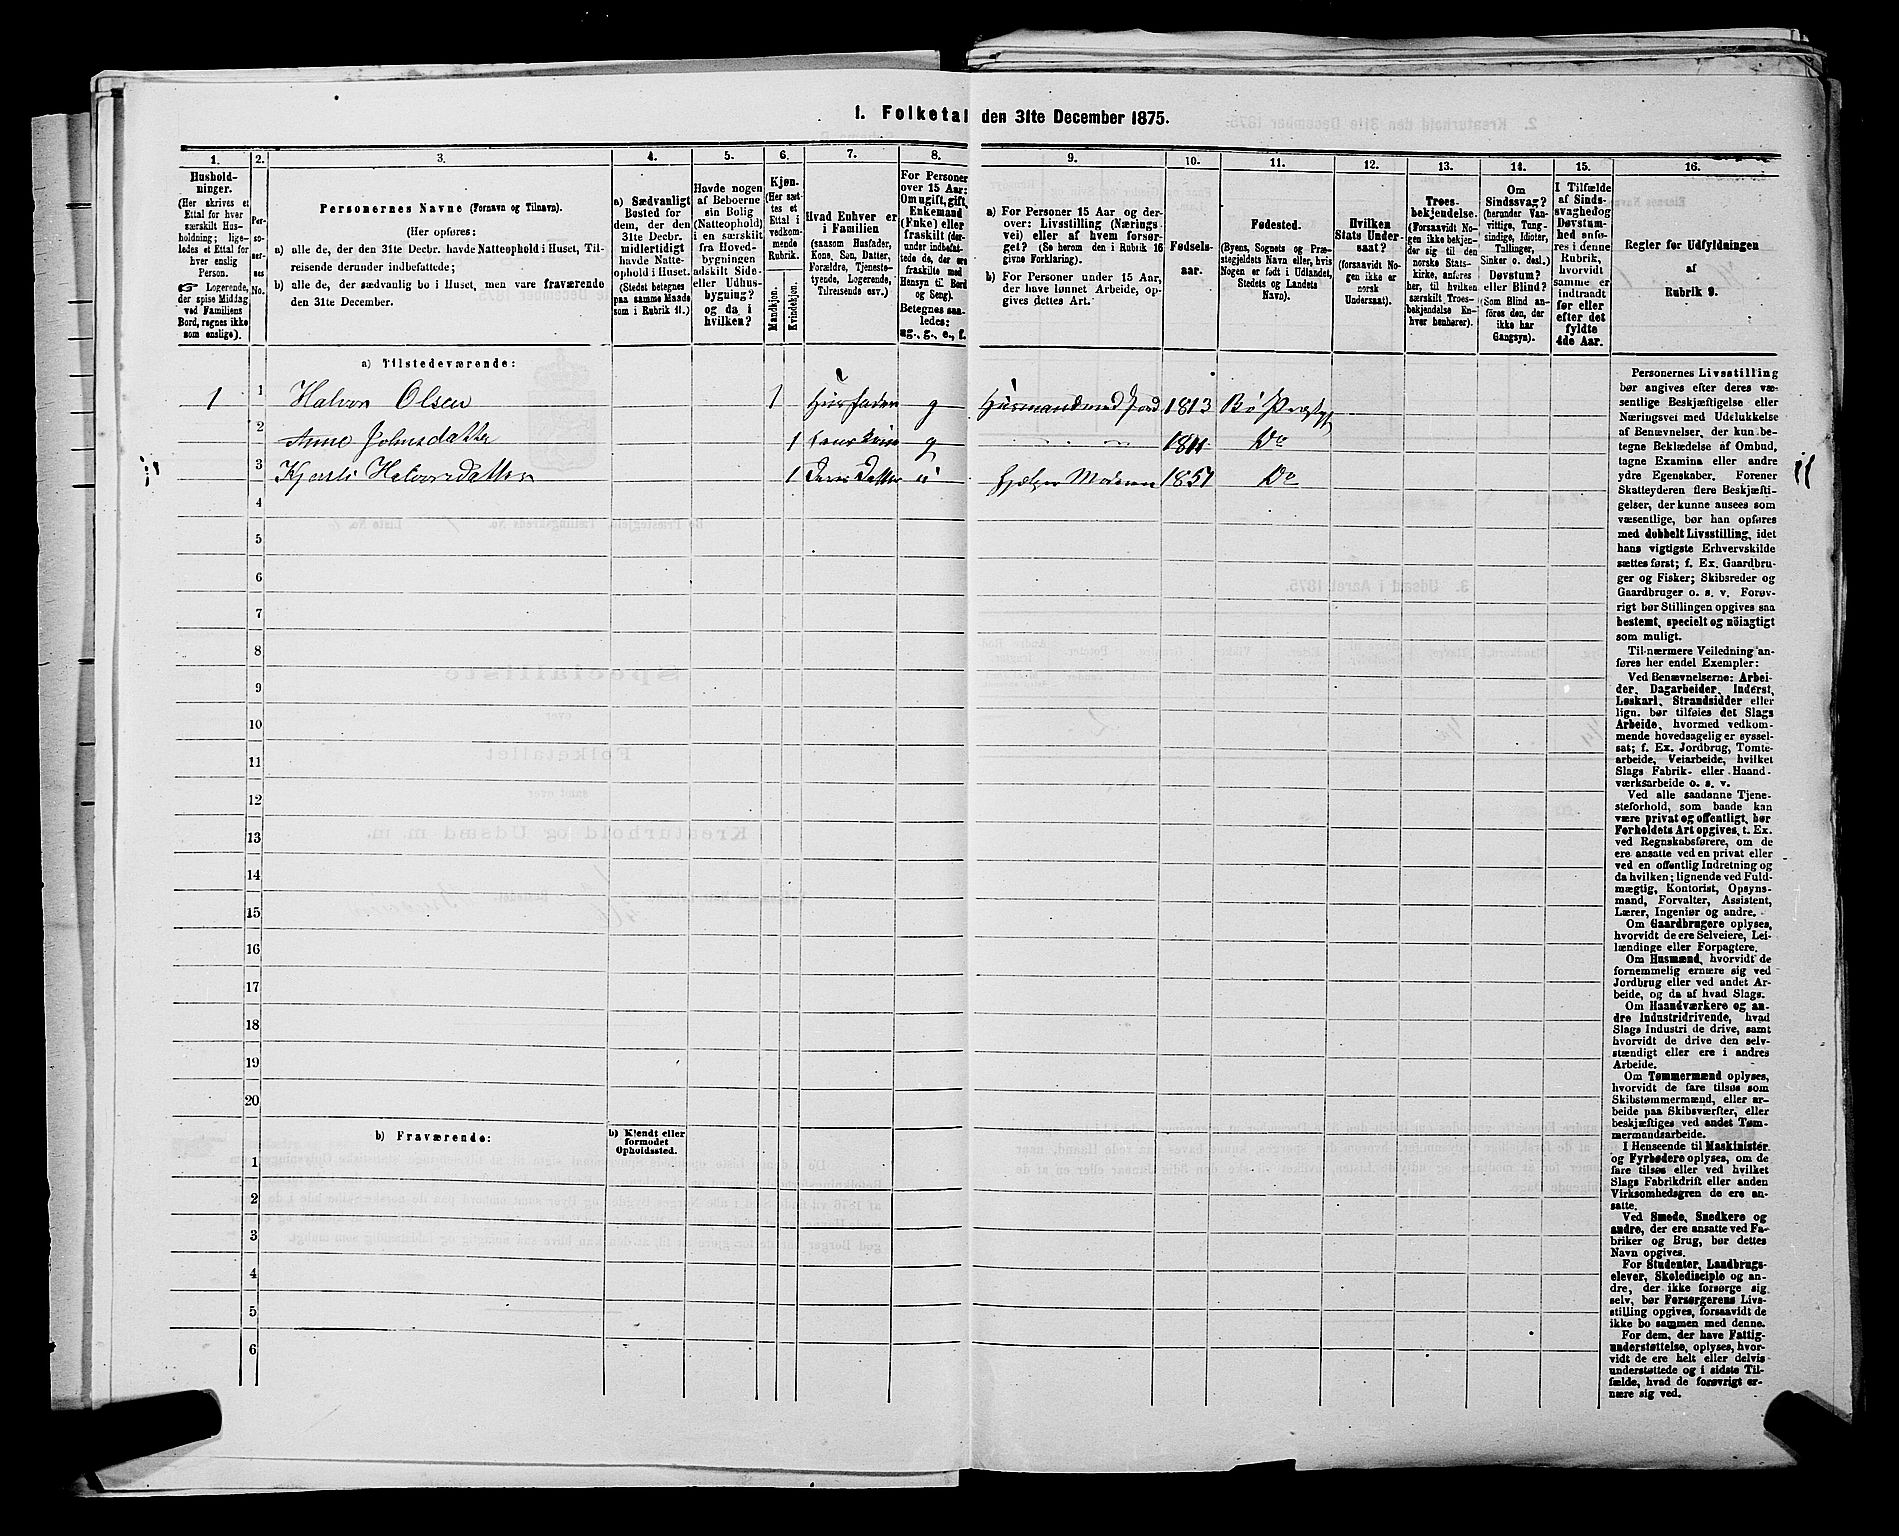 1. Folketal den 31te December 1875.
1. 2. 3. 4. 5. 6. 7. 8. 9. 10. 11. 12. 13. 14. 15. 16.
Hushold-
ninger.
(Her skrives et
Ettal for hver
særskilt Hus-
holdning; lige-
ledes et Ettal for
hver enslig
Person.
☞ Logerende,
der spise Middag
ved Familiens
Bord, regnes ikke
som enslige).
Per-
so-
ner-
nes
No.
Personernes Navne (Fornavn og Tilnavn).
(Her opføres:
a) alle de, der den 31te Decbr. havde Natteophold i Huset, Til-
reisende derunder indbefattede;
b) alle de, der sædvanlig bo i Huset, men vare fraværende
den 31te December.
a) Sædvanligt
Bosted for
dem, der den
31te Decbr.
midlertidigt
havde Natte-
ophold i Huset.
(Stedet betegnes
paa samme Maade
som i Rubrik 11.)
Havde nogen
af Beboerne
sin Bolig
(Natteophold)
i en særskilt
fra Hoved-
bygningen
adskilt Side-
eller Udhus-
bygning?
og da i
hvilken?
Kjøn.
(Her sæt-
tes et
Ettal i
vedkom-
mende
Rubrik.
Mandkjøn.
Kvindekjøn.
Hvad Enhver er
i Familien
(saasom Husfader,
Kone, Søn, Datter,
Forældre, Tjeneste-
tyende, Logerende,
Tilreisende osv.)
For Personer
over 15 Aar:
Om ugift, gift,
Enkemand
(Enke) eller
fraskilt (der-
under indbefat-
tede de, der ere
fraskilte med
Hensyn til Bord
og Seng).
Betegnes saa-
ledes:
ug., g., e., f.
a) For Personer 15 Aar og der-
over: Livsstilling (Nærings-
vei) eller af hvem forsør-
get? (Se herom den i Rubrik 16
givne Forklaring).
b) For Personer under 15 Aar,
der have lønnet Arbeide, op-
gives dettes Art.
Fødsels-
aar.
Fødested.
(Byens, Sognets og Præ-
stegjeldets Navn eller, hvis
Nogen er født i Udlandet,
Stedets og Landets
Navn).
Hvilken
Stats Under-
saat?
(forsaavidt No-
gen ikke er
norsk
Undersaat).
Troes-
bekjendelse.
(Forsaavidt No-
gen ikke bekjen-
der sig til den
norske Stats-
kirke, anføres
her, til hvilken
særskilt Troes-
bekjendelse En-
hver henhører).
Om
Sindssvag?
(herunder Van-
vittige, Tung-
sindige, Idioter,
Tullinger,
Sinker o. desl.)
Døvstum?
eller Blind?
(Som Blind an-
føres den, der
ikke har
Gangsyn).
I Tilfælde
af Sinds-
svaghed og
Døvstum-
hed anfø-
res i denne
Rubrik,
hvorvidt
samme er
indtraadt
før eller
efter det
fyldte
4de Aar.
Regler for Udfyldningen
af
Rubrik 9.
a) Tilstedeværende:
1 1 Halvor Olsen 1 Husfader g Husmand med Jord 1813 Bø Prestgj
2 Anne Johnsdatter 1 g 1811 Do
3 Halvorsdatter 1 Deres Datter u hjelper Moderen 1851 Do
4
5
6
7
8
9
10
11
12
13
14
15
16
17
18
19
20
b) Fraværende:
b) Kjendt eller
formodet
Opholdssted.
1
2
3
4
5
6
Personernes Livsstilling
bør angives efter deres væ-
sentlige Beskjæftigelse eller
Næringsvei med Udelukkelse
af Benævnelser, der kun be-
tegne Beklædelse af Ombud,
tagne Examina eller andre
ydre Egenskaber. Forener
Skatteyderen flere Beskjæfti-
gelser, der kunne ansees som
væsentlige, bør han opføres
med dobbelt Livsstilling, idet
hans vigtigste Erhvervskilde
sættes først; f. Ex. Gaardbru-
ger og Fisker; Skibsreder og
Gaardbruger o. s. v. Forøv-
rigt bør Stillingen opgives saa
bestemt, specielt og nöiagtigt
som muligt.
Til nærmere Veiledning an-
føres her endel Exempler:
Ved Benævnelserne: Arbei-
der, Dagarbeider, Inderst,
Løskarl, Strandsidder eller
lign. bør tilføies det Slags
Arbeide, hvormed vedkom-
mende hovedsagelig er syssel-
sat; f. Ex. Jordbrug, Tomte-
arbeide, Veiarbeide, hvilket
Slags Fabrik- eller Haand-
værksarbeide o. s. v.
Ved alle saadanne Tjene-
steforhold, som baade kan
være privat og offentligt, bør
Forholdets Art opgives, t. Ex.
ved Regnskabsførere, om de
ere ansatte ved en privat eller
ved en offentlig Indretning og
da hvilken; lignende ved Fuld-
mægtig, Kontorist, Opsyns-
mand, Forvalter, Assistent,
Lærer, Ingeniør og andre.
Om Gaardbrugere oplyses,
hvorvidt de ere Selveiere, Lei-
lændinge eller Forpagtere.
Om Husmænd, hvorvidt de
fornemmelig ernære sig ved
Jordbrug eller ved andet Ar-
beide, og da af hvad Slags.
Om Haandværkere og an-
dre Industridrivende, hvad
Slags Industri de drive, samt
hvorvidt de drive den selv-
stændigt eller ere i andres
Arbeide.
Om Tømmermænd oplyses,
hvorvidt de fare tilsøs som
Skibstømmermænd, eller ar-
beide paa Skibsværfter, eller
beskjæftiges ved andet Tøm-
mermandsarbeide.
I Henseende til Maskinister
og Fyrbødere oplyses, om de
fare tilsøs eller ved hvilket
Slags Fabrikdrift eller anden
Virksomhedsgren de ere an-
satte.
Ved Smede, Snedkere og
andre, der ere ansatte ved Fa-
briker og Brug, bør dettes
Navn opgives.
For Studenter, Landbrugs-
elever, Skoledisciple og an-
dre, der ikke forsørge sig
selv, bør Forsørgerens Livs-
stilling opgives, forsaavidt de
ikke bo sammen med denne.
For dem, der have Fattig-
understøttelse, oplyses, hvor-
vidt de ere helt eller delvis
understøttede og i sidste Til-
fælde, hvad de forøvrigt er-
nære sig ved.